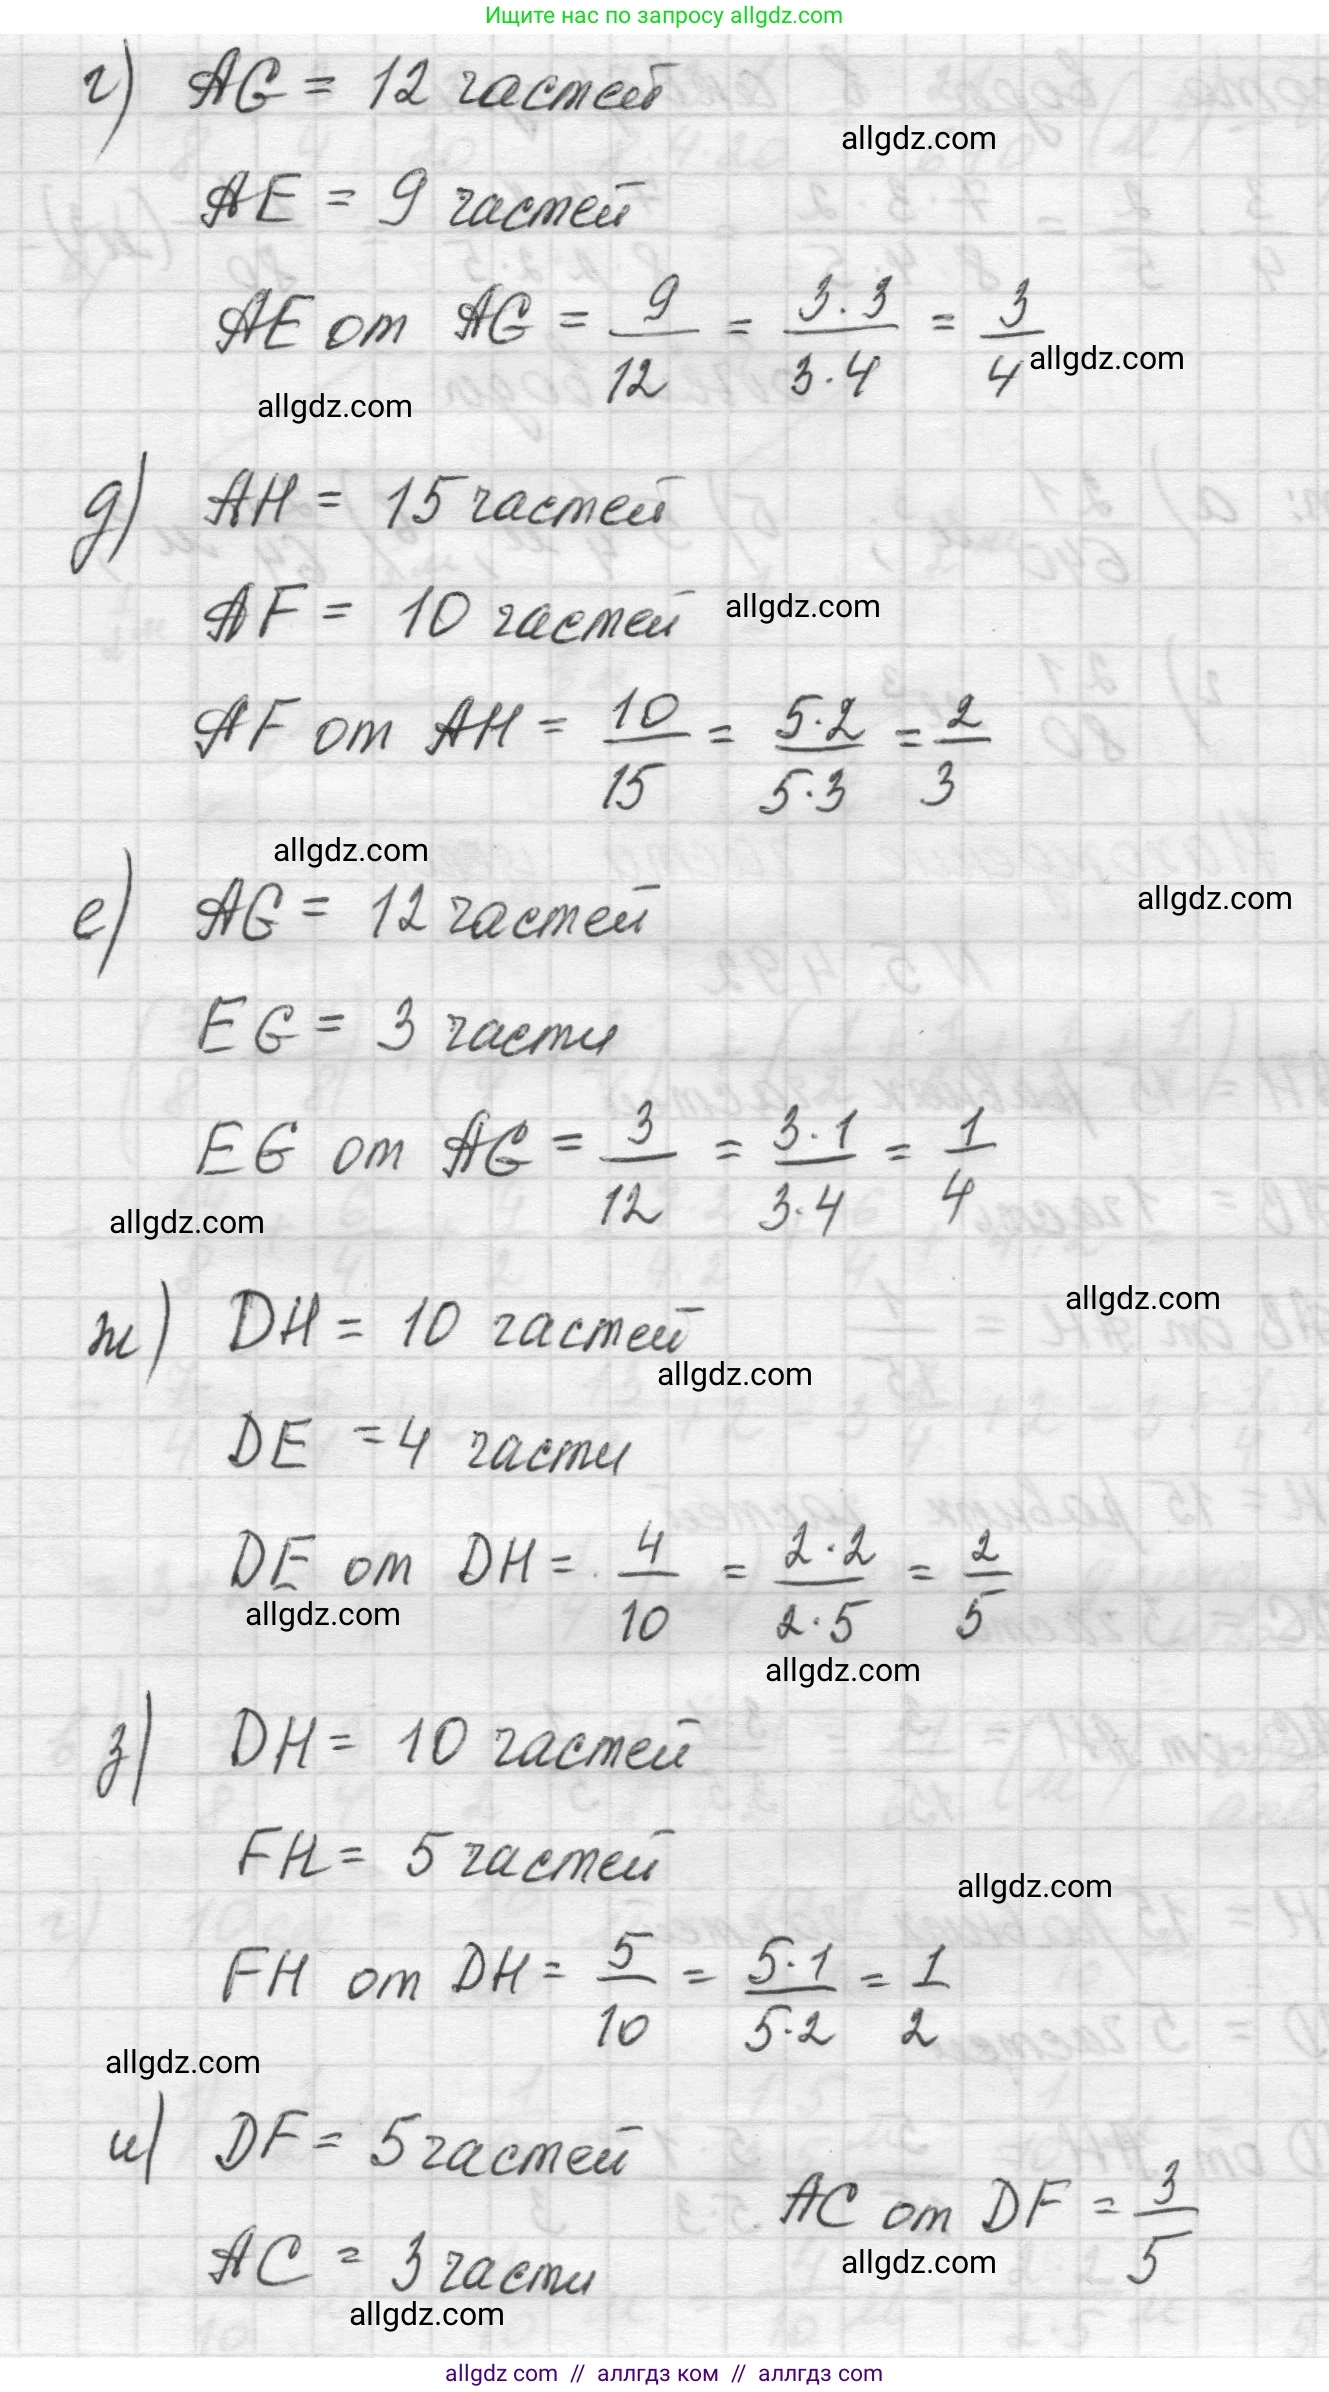 Ищите нас по запросу allgdz.com
г) AG = 12 частей
allgdz.com
AE = 9 частей
AE от AG = 9/12 = 3·3/3·4 = 3/4
allgdz.com
allgdz.com
д) AH = 15 частей
AF = 10 частей
allgdz.com
AF от AH = 10/15 = 5·2/5·3 = 2/3
allgdz.com
allgdz.com
е) AG = 12 частей
EG = 3 части
EG от AG = 3/12 = 3·1/3·4 = 1/4
allgdz.com
allgdz.com
ж) DH = 10 частей
allgdz.com
DE = 4 части
DE от DH = 4/10 = 2·2/2·5 = 2/5
allgdz.com
allgdz.com
з) DH = 10 частей
FH = 5 частей
allgdz.com
FH от DH = 5/10 = 5·1/5·2 = 1/2
allgdz.com
и) DF = 5 частей
AC от DF = 3/5
AC = 3 части
allgdz.com
allgdz.com
allgdz com // аллгдз ком // аллгдз com